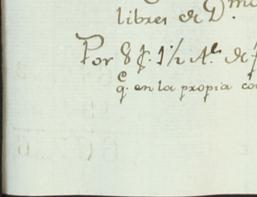 libres de D.ⁿ
Por 8 ₡. 1½ Aˢ. de
q̃. en la propia co